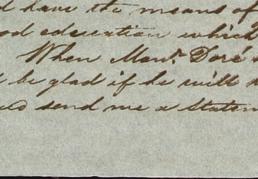 d have the means of
od education which
When Monr. Doré
be glad if he will
send me a Statem